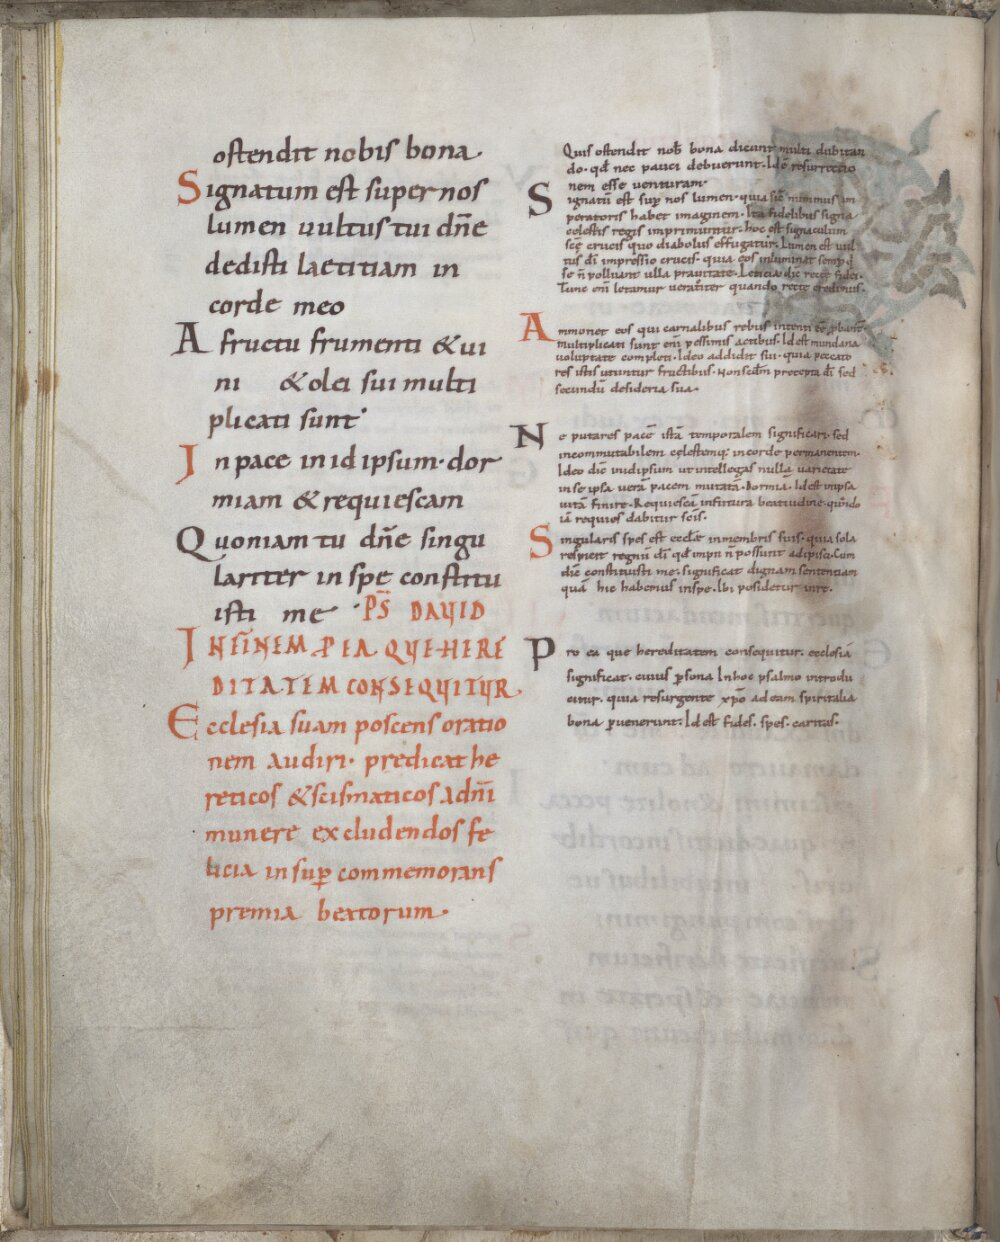 ostendit nobis bona.
Signatum est super nos
lumen uultus tui dñe
dedisti laetitiam in
corde meo
A fructu frumenti & ui
ni & olei sui multi
plicati sunt·
In pace in id ipsum· dor
miam & requiescam
Quoniam tu dñe singu
lariter in spe constitu
isti me · PS̄ DAVID
IN FINEM P EA QUE HERE
DITATEM CONSEQUITUR.
Ecclesia suam poscens oratio
nem audiri· predicat he
reticos & scismaticos a dñi
munere excludendos fe
licia insup̄ commemorans
premia beatorum·
Quis ostendit nob̄ bona dicunt multi dubitan
do· qđ nec pauci debuerunt· Id ē resurrectio
nem esse uenturam·
Signatū est sup̄ nos lumen· quia sic̄ nummus im
peratoris habet imaginem· Ita fidelibus signa
cęlestis regis imprimuntur· hoc est signaculum
scę̄ crucis quo diabolus effugatur· Lumen est uul
tus dī impressio crucis· quia eos inluminat semp̄ q̄
se n̄ polluunt ulla prauitate· Leticia dic̄ recte fidei·
Tunc enī letamur ueraciter quando recte credimus·
Ammonet eos qui carnalibus rebus intenti
multiplicati sunt enī pessimis actibus· Id est mundana
uoluptate completi· Ideo addidit sui· quia peccato
res istis utuntur fructibus· Non scdm̄ precepta dī sed
secundū desideria sua·
Ne putares pacē istā temporalem significari· sed
incommutabilem cęlestemq; in corde permanentem·
Ideo dic̄ in idipsum ut intellegas nullā uarietate
in se ipsa uerā pacem mutatā· Dormiā· Id est in ipsa
uitā finire· Requiescā in futura beatitudine· qn̄do
iā requies dabitur scīs·
Singularis spes est ecclę in membris suis· quia sola
respicit regnū dī qđ impii n̄ possunt adipisci· Cum
dic̄ constituisti me· significat dignam sententiam
quā hic habemus in spe· Ibi posidetur in re·
Pro ea que hereditatem consequitur· ecclesiā
significat· cuius p̱sona In hoc psalmo introdu
citur· quia resurgente xp̄o ad eam spiritalia
bona p̱uenerunt· Id est fides· spes· caritas·